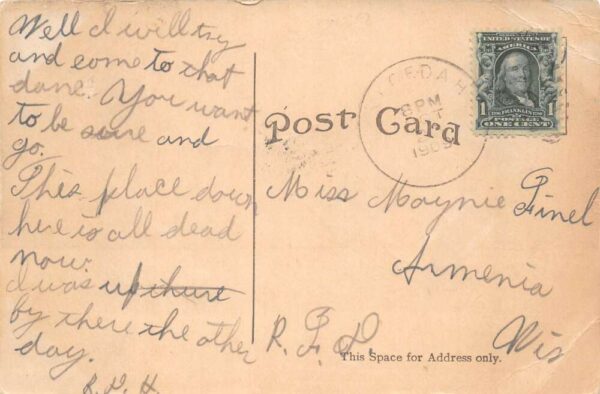 Well I will try
and come to that
dane. You want
to be sure and
go.
This place down
here is all dead
now.
I was up there
by there the other
day.
R. V. H.
Post Card
NECEDAH
8 PM
190
SERIES 1902
UNITED STATES OF
AMERICA
1 FRANKLIN 1
POSTAGE
ONE CENT
Miss Maynie Finel
Armenia
Wis
R. F. D.
This Space for Address only.